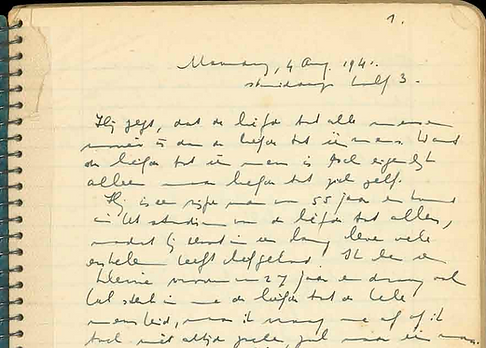 1.
Maandag, 4 Aug. 1941.
middags half 3.
Hij zegt, dat de liefde tot alle mensen
mooier is dan de liefde tot één mens. Want
de liefde tot één mens is toch eigenlijk
alleen maar liefde tot jezelf.
Hij is een rijpe man van 55 jaar en
in het stadium van de liefde tot allen,
nadat hij eerst in een lang leven vele
enkelen heeft liefgehad. Ik ben een
kleine vrouw van 27 jaar en draag ook
sterk in me de liefde tot de hele
mensheid, maar ik vraag me af of ik
toch niet altijd zoeken zal naar één man.